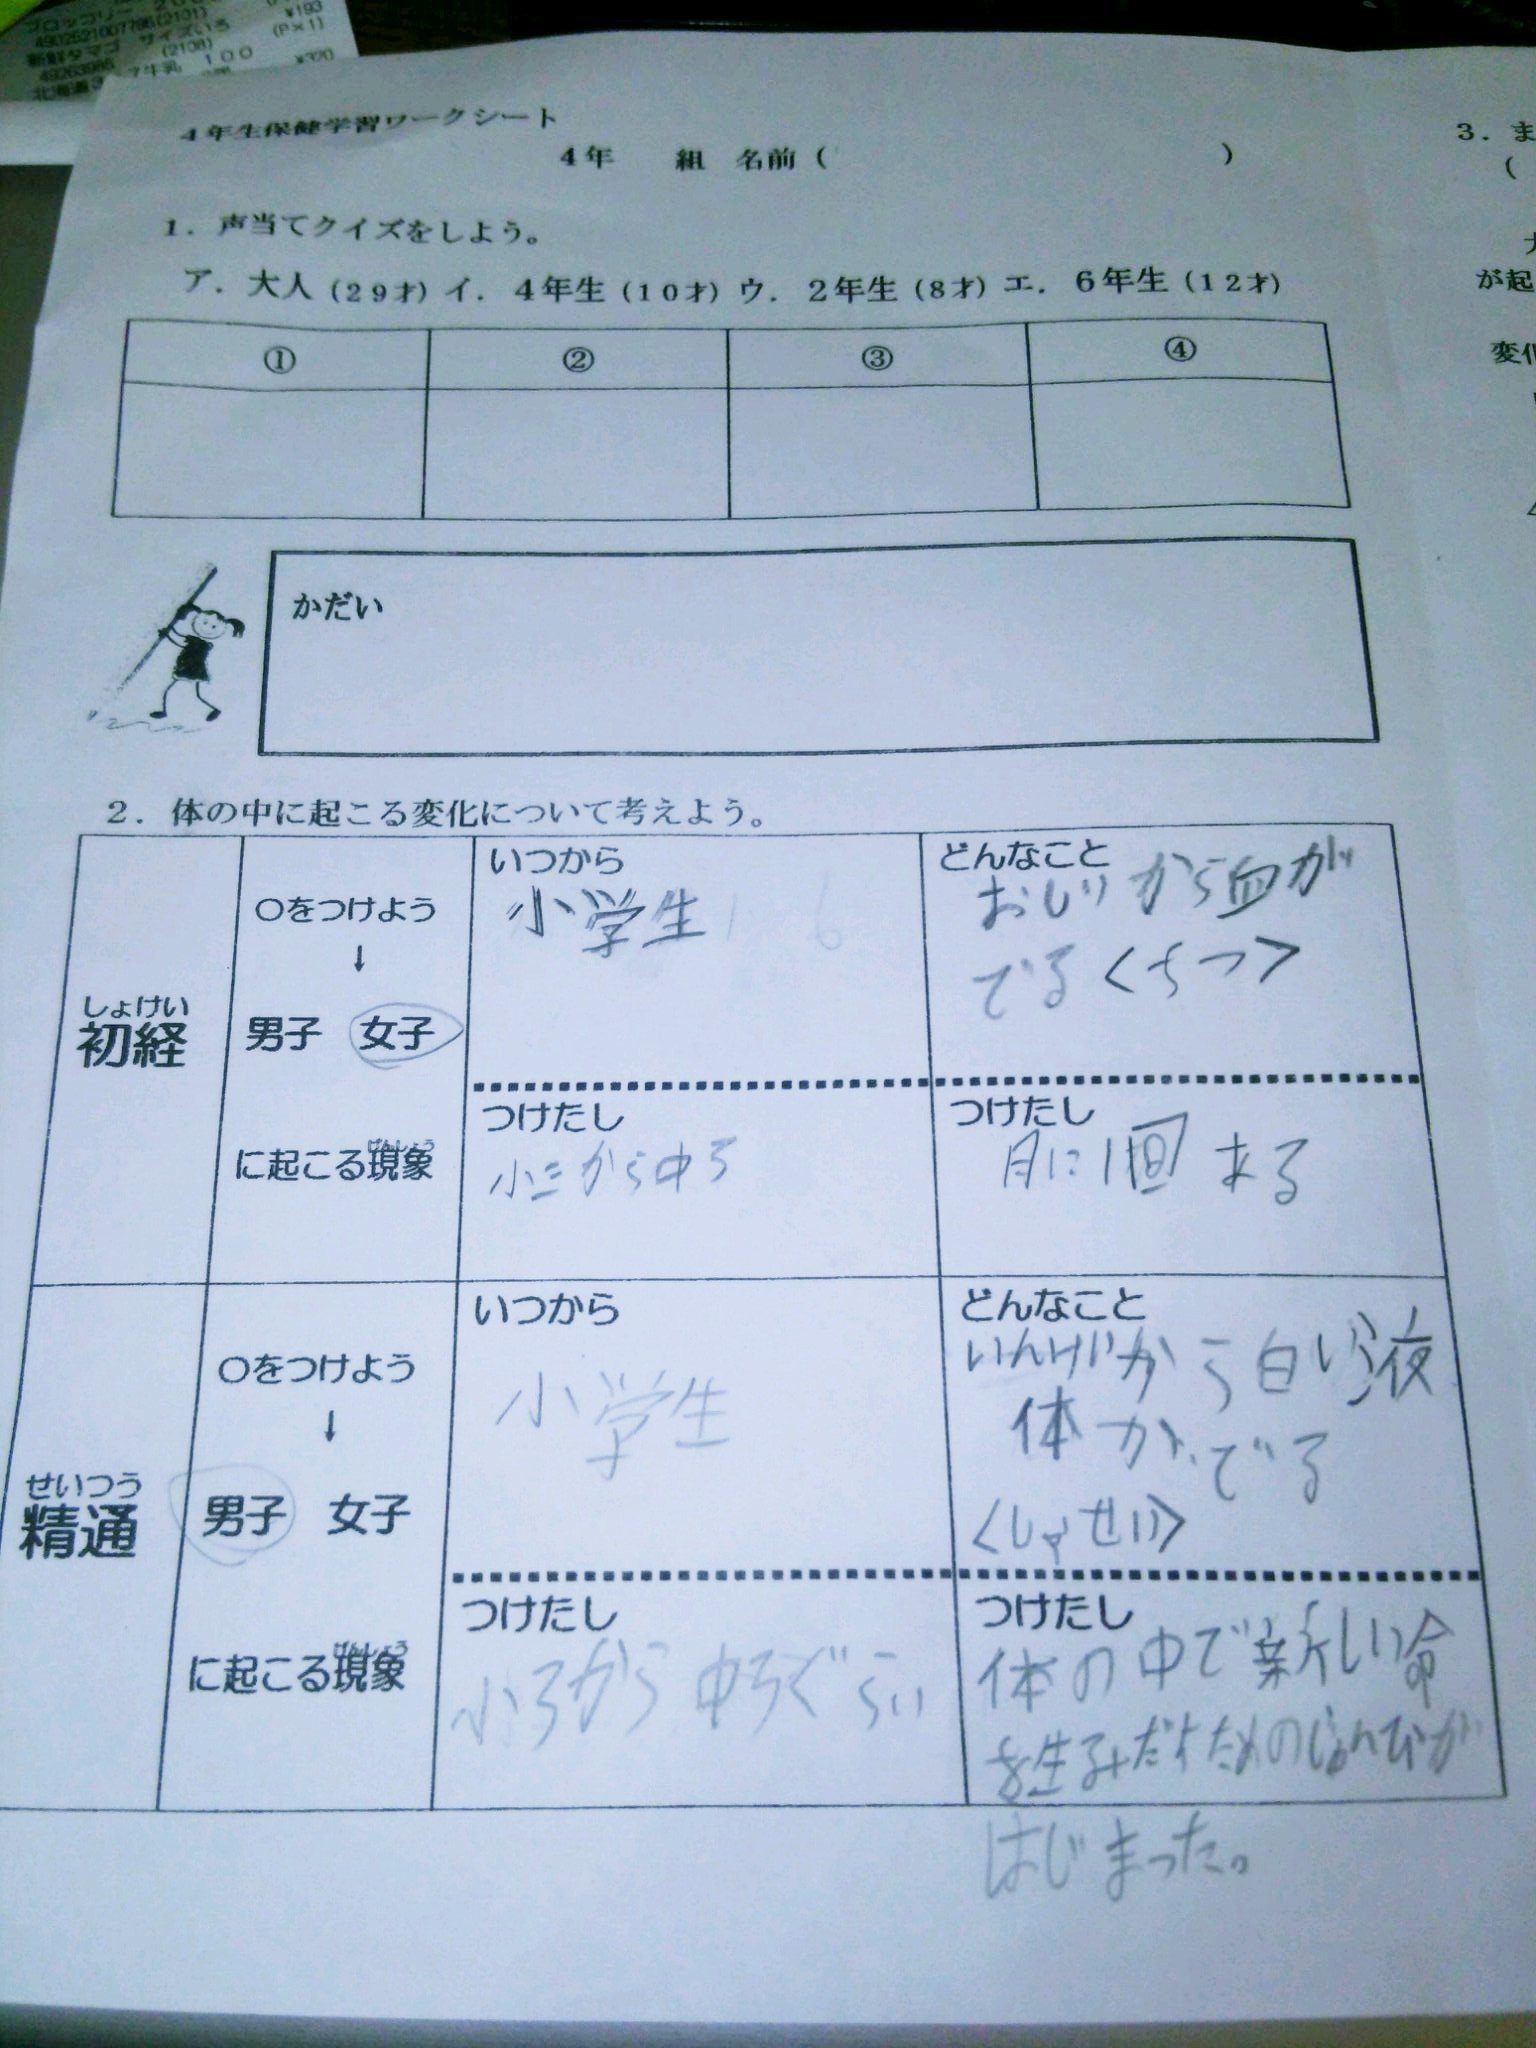 4902521007796(2101)
¥193
新鮮タマゴ サイズいろ
(P×1)
49263986
(2108)
牛乳 100
¥320
4年生保健学習ワークシート
4年 組 名前( )
1. 声当てクイズをしよう。
ア. 大人(29才) イ. 4年生(10才) ウ. 2年生(8才) エ. 6年生(12才)
① ② ③ ④
かだい
2. 体の中に起こる変化について考えよう。
しょけい
初経
○をつけよう
↓
男子 女子
げんしょう
に起こる現象
いつから
小学生
どんなこと
おしりから血が
でる<ちつ>
つけたし
小三から中3
つけたし
月に1回来る
せいつう
精通
○をつけよう
↓
男子 女子
げんしょう
に起こる現象
いつから
小学生
どんなこと
いんけいから白い液
体がでる
<しゃせい>
つけたし
小5から中3ぐらい
つけたし
体の中で新しい命
を生みだすためのじゅんびが
はじまった。
3. ま
(
が起
変化